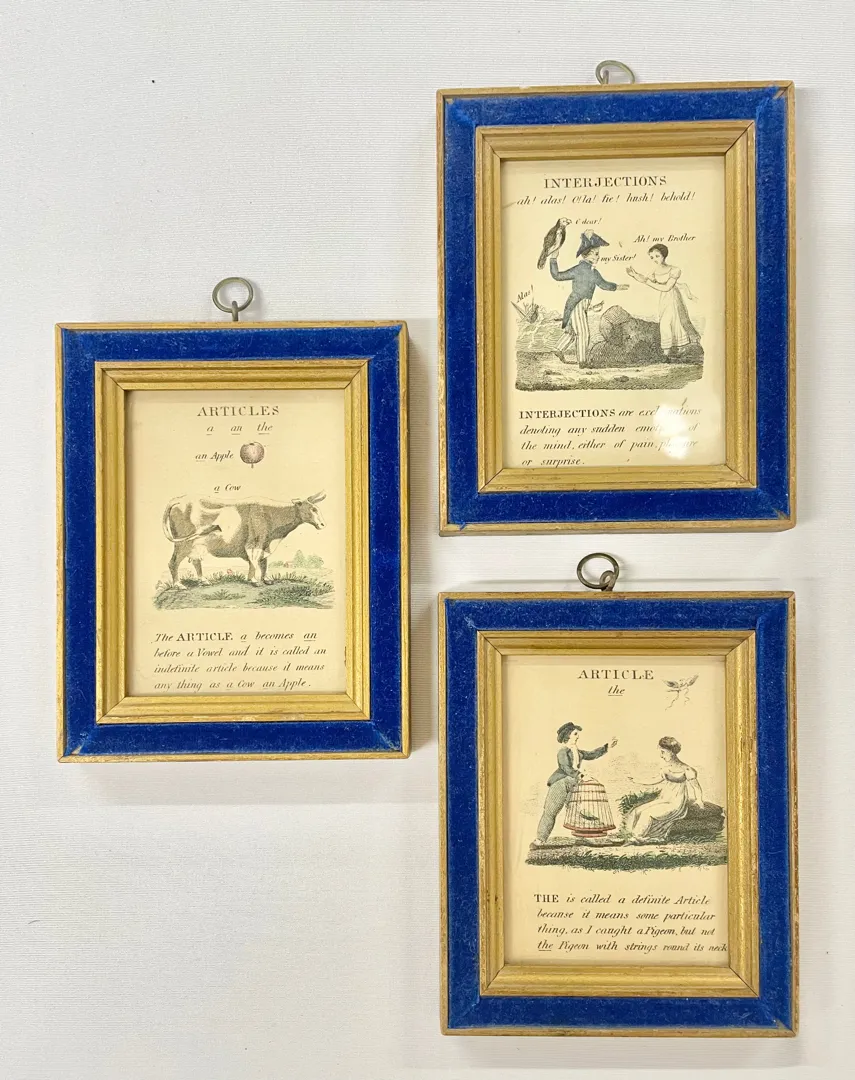 ARTICLES
a an the
an Apple
a Cow
The ARTICLE a becomes an
before a Vowel and it is called an
indefinite article because it means
any thing as a Cow an Apple.
INTERJECTIONS
ah! alas! O! la! fie! hush! behold!
O dear!
Ah! my Brother
my Sister!
Alas!
INTERJECTIONS are exclamations
denoting any sudden emotions of
the mind, either of pain, pleasure
or surprise.
ARTICLE
the
THE is called a definite Article
because it means some particular
thing, as I caught a Pigeon, but not
the Pigeon with strings round its neck